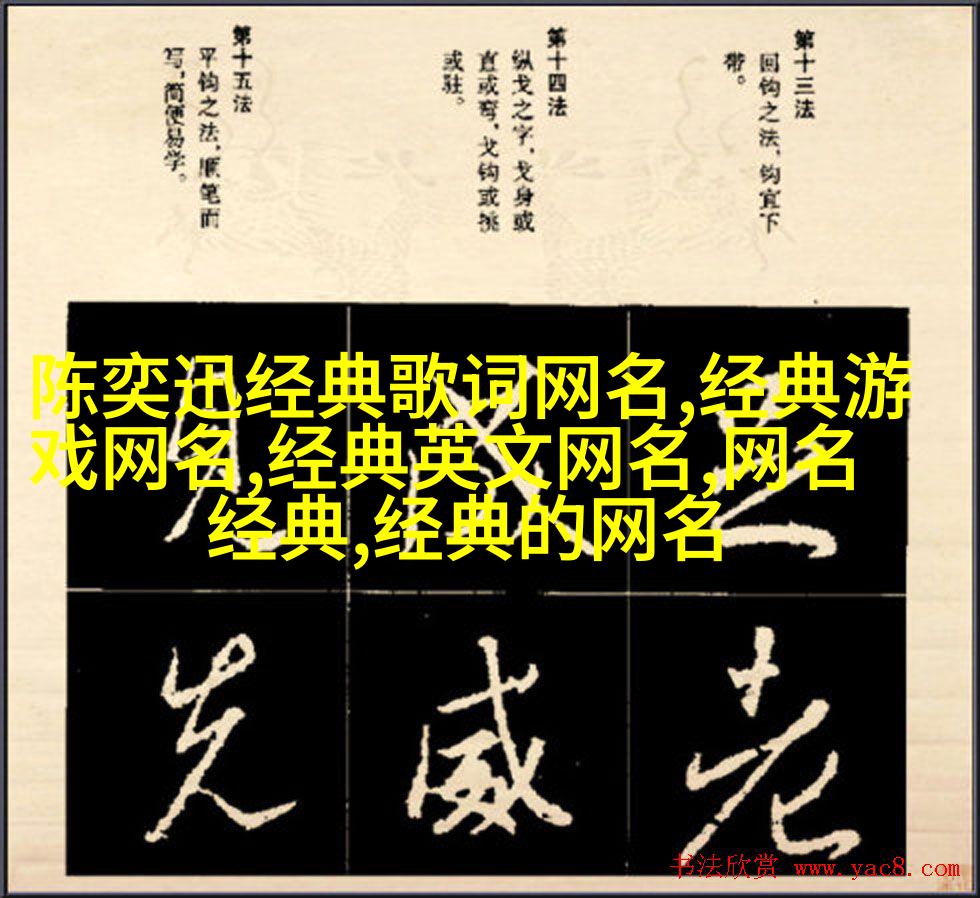 第十三法
回钩之法,钩宜下
带。
第十四法
纵戈之字,戈身或
直或弯,戈钩或挑
或驻。
第十五法
平钩之法,顺笔而
写,简便易学。
陈奕迅经典歌词网名,经典游
戏网名,经典英文网名,网名
经典,经典的网名
老
威
先
书法欣赏 www.yac8.com